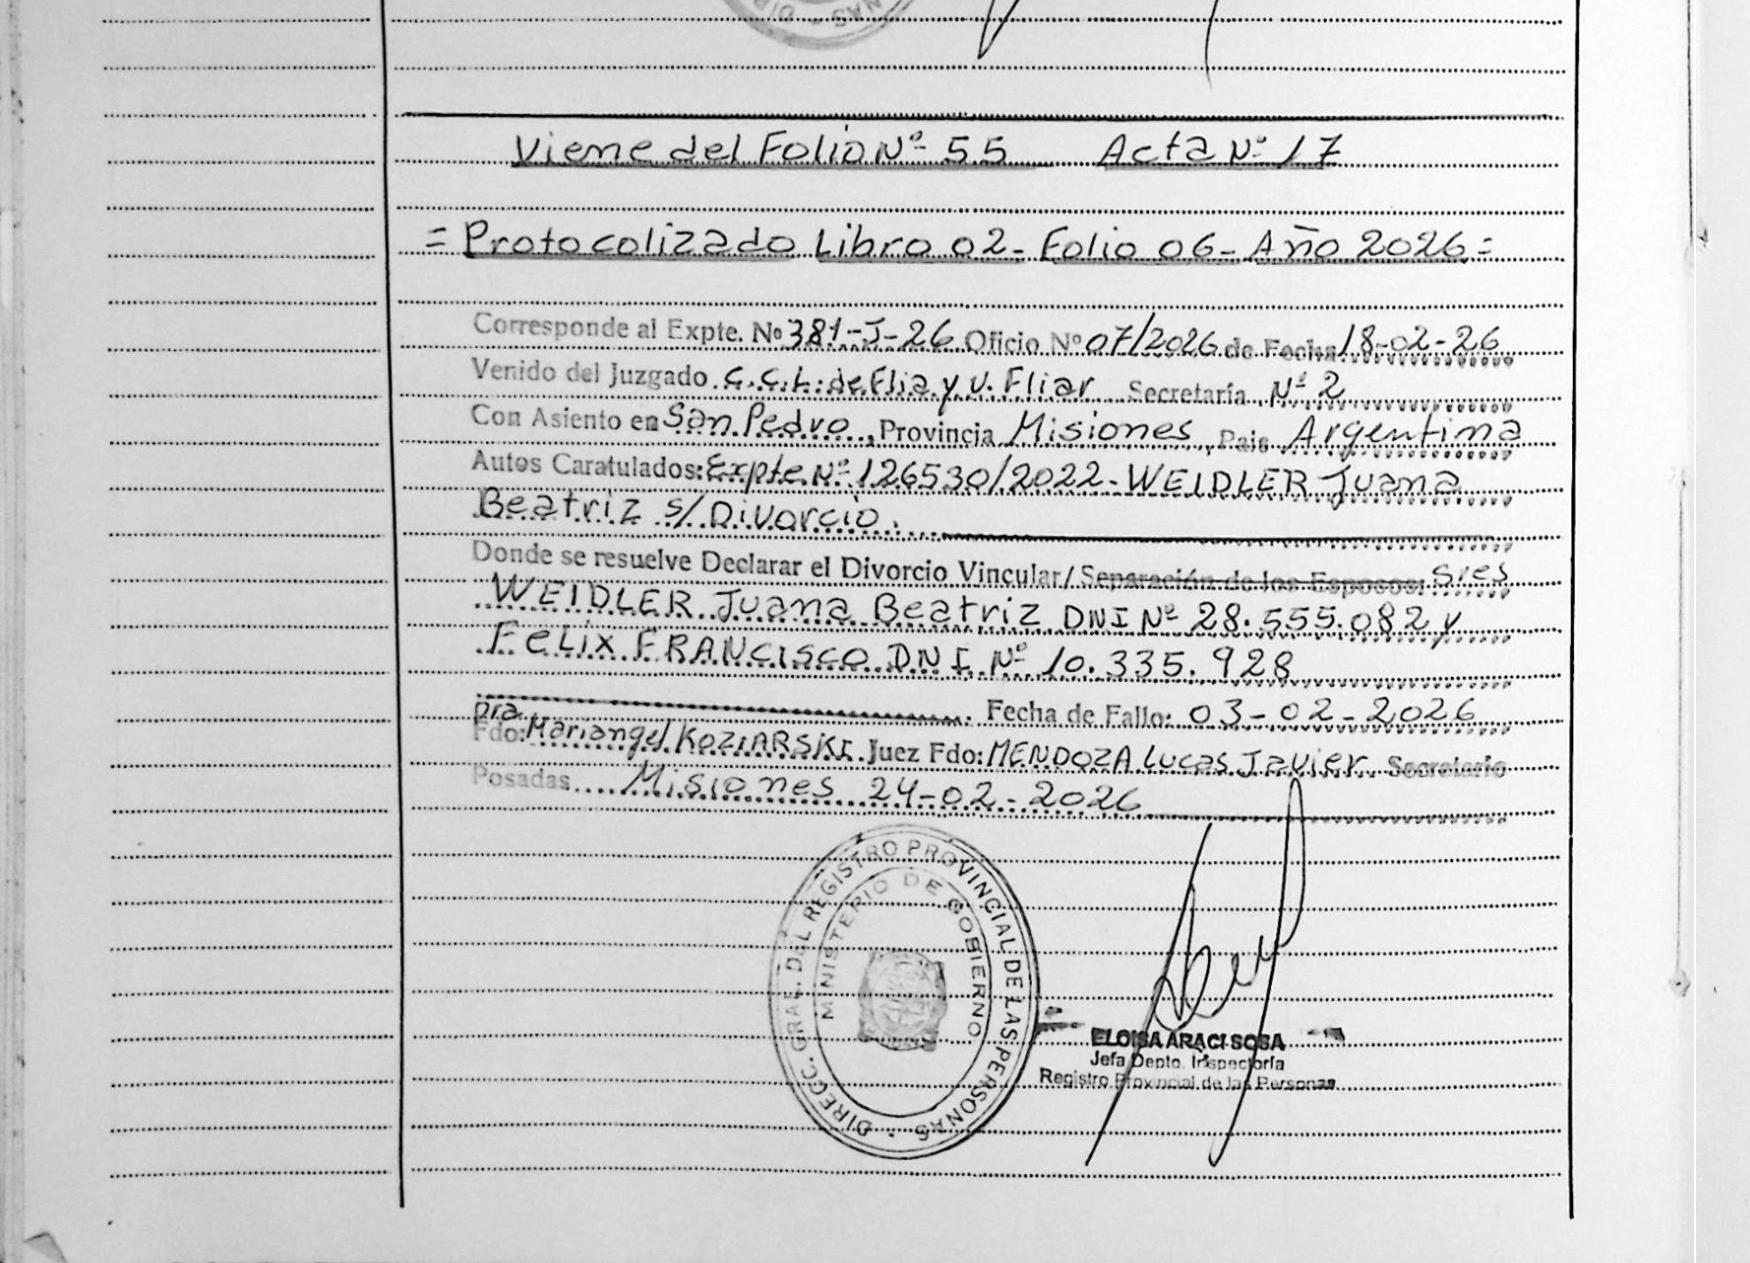 Viene del Folio Nº 55 Acta Nº 17
= Protocolizado Libro 02 - Folio 06 - Año 2026 =
Corresponde al Expte. Nº 381-J-26 Oficio Nº 07/2026 de Fecha 18-02-26
Venido del Juzgado C.C.L. de Flia y V. Fliar Secretaría Nº 2
Con Asiento en San Pedro, Provincia Misiones, Pais Argentina
Autos Caratulados: Expte Nº 126530/2022 - WEIDLER Juana
Beatriz s/ Divorcio.
Donde se resuelve Declarar el Divorcio Vincular/ Separación de los Esposos: Sres
WEIDLER Juana Beatriz DNI Nº 28.555.082 y
FeLix FRANCISCO DNI Nº 10.335.928
Fecha de Fallo: 03-02-2026
Fdo: Dra Mariangel KOZIARSKI Juez Fdo: MENDOZA Lucas Javier Secretario
Posadas Misiones 24-02-2026
DIRECC. GRAL. DEL REGISTRO PROVINCIAL DE LAS PERSONAS
MINISTERIO DE GOBIERNO
ELOISA ARACI SOSA
Jefa Depto. Inspectoría
Registro Provincial de las Personas